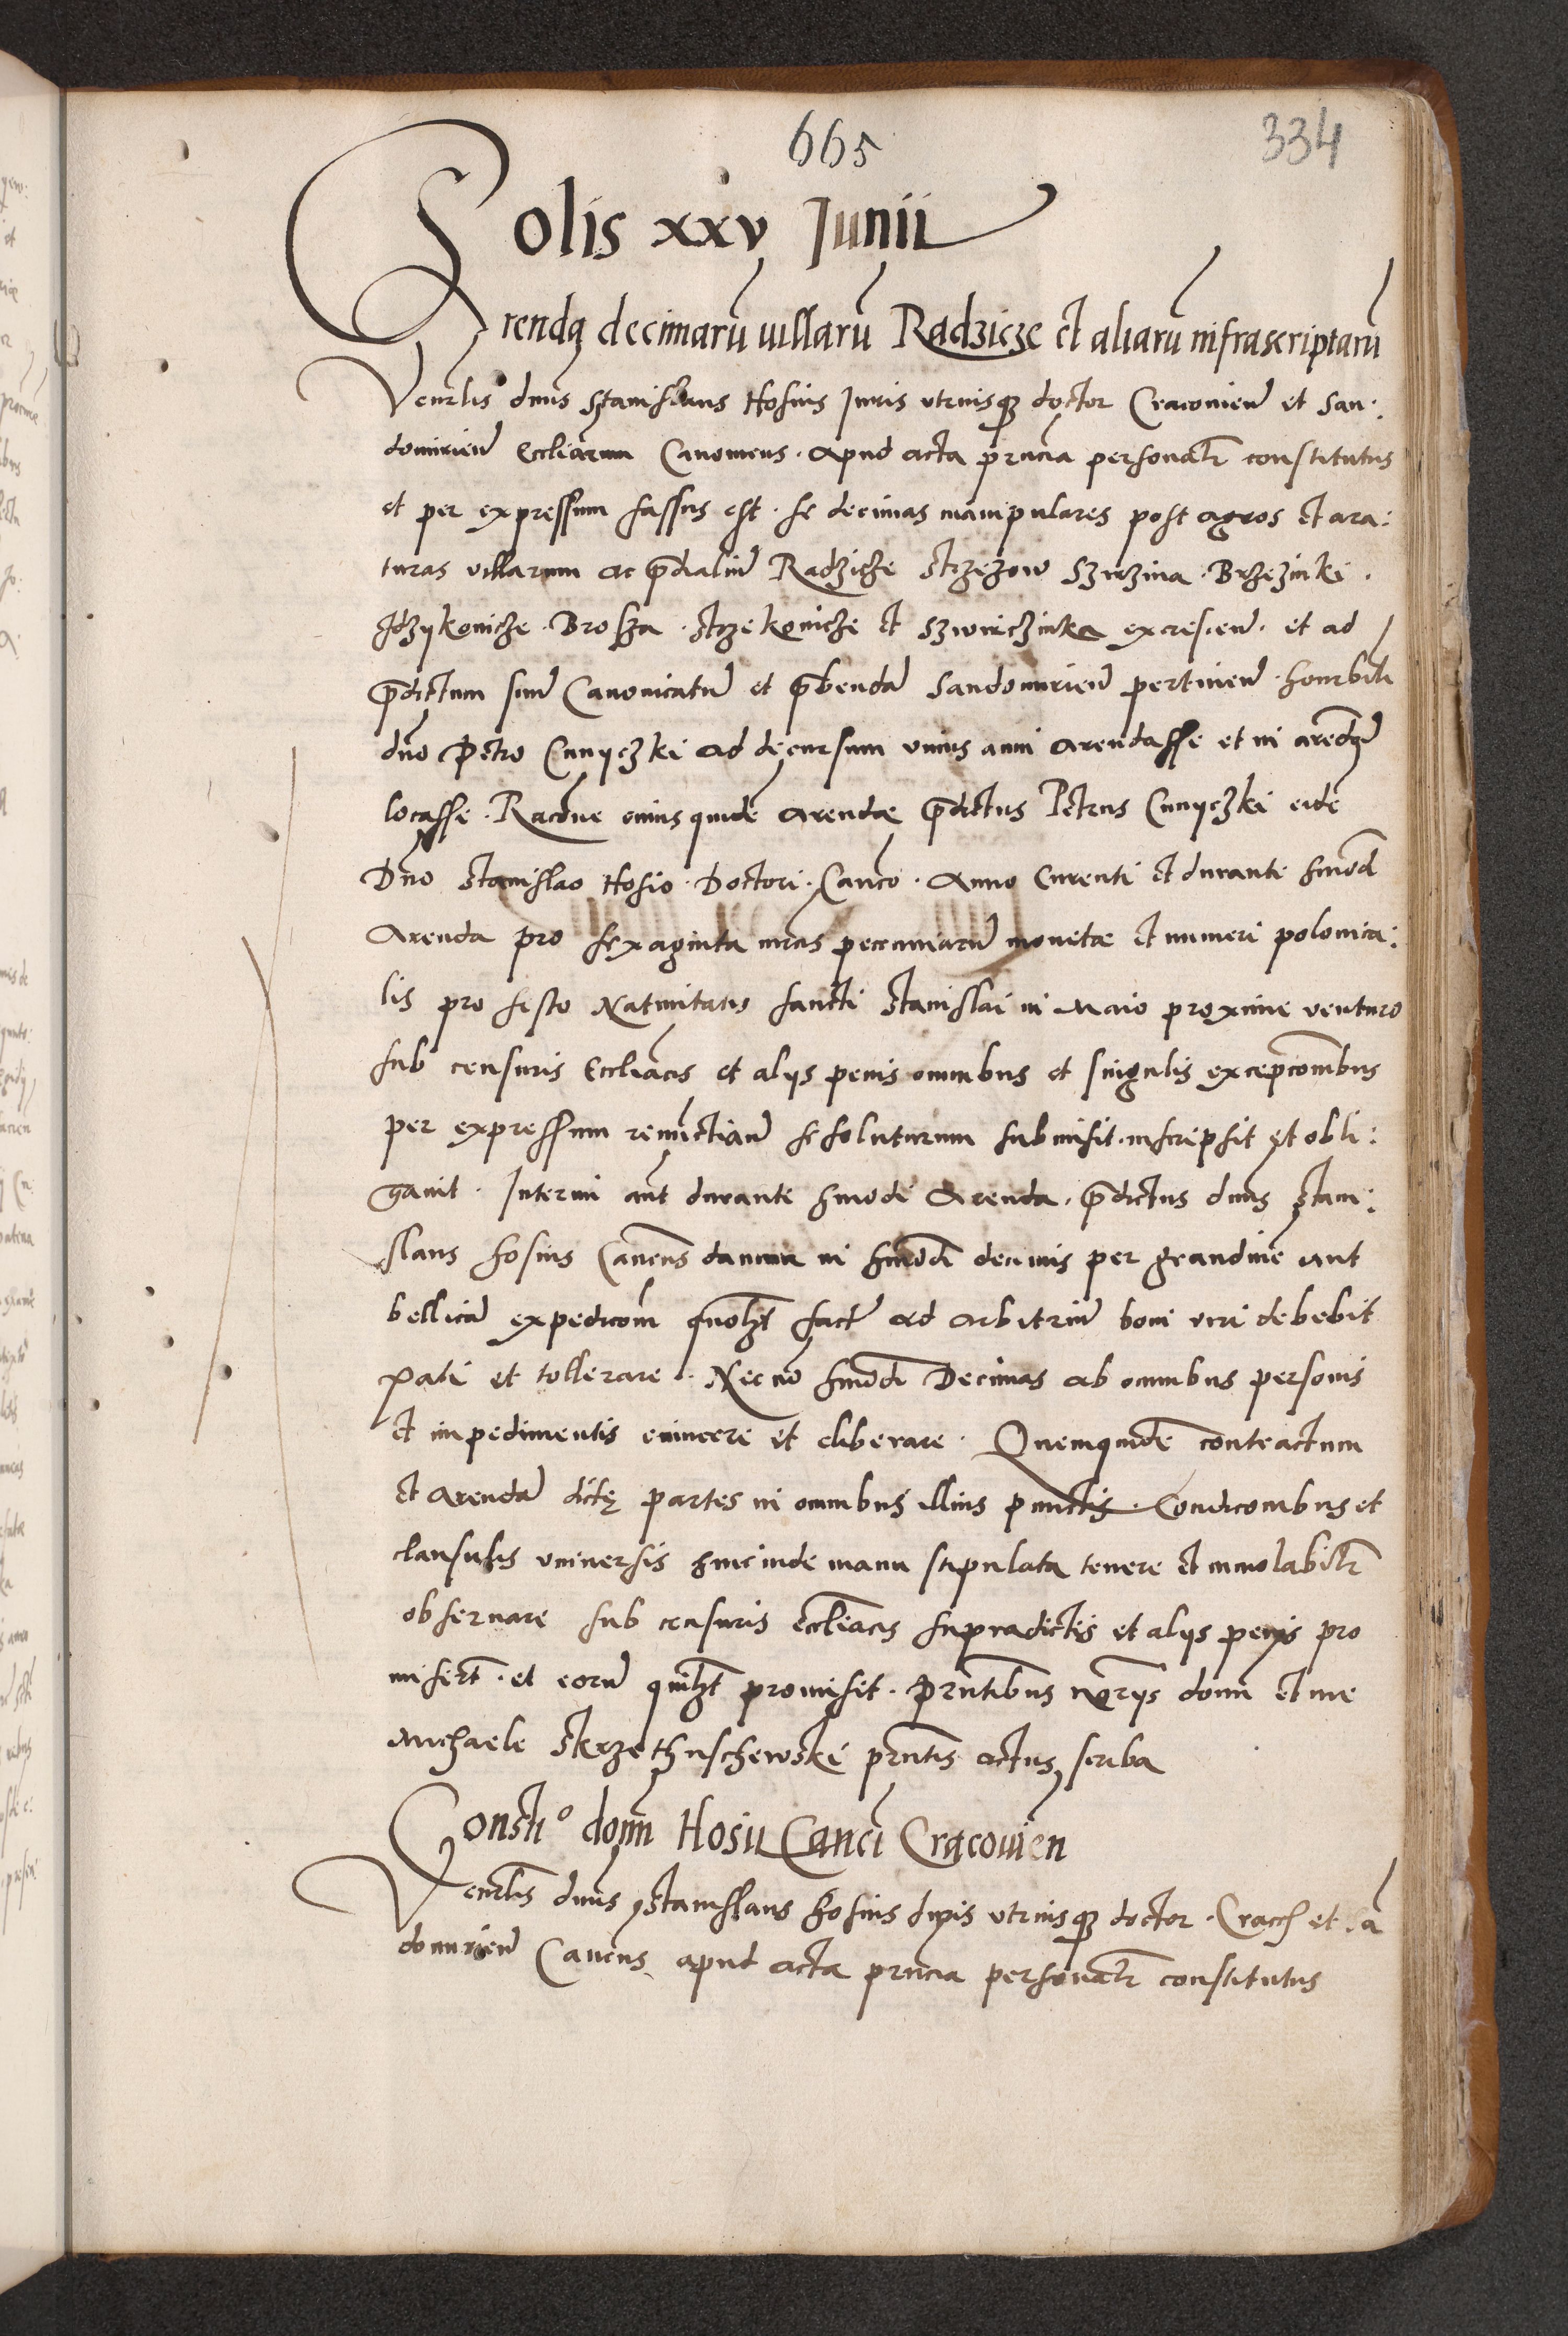 665
334
Solis xxv Junii
Arenda decimarū uillarū Radzicze et aliarū infrascriptarū
Venrlis dnus Stanislaus Hosius Juris utriusq3 doctor Cracouien̄ et San:
domirien̄ Eccliarum Canonicus. apud acta prncia personalr̄ constitutus
et per expressum fassus est. se decimas manipulares post agros et ara:
turas villarum ac p̄dialiū Radzicze Strzezow Szirzina. Brzezinki.
Idzykonicze. Brosza. Strzekonicze et Szwiniczinka excrescen̄. et ad
p̄dictum suū Canonicatū et p̄bendā Sandomirien̄ pertinen̄. honrbili
dno Petro Cunyczki ad decursum unius anni arendasse et in arendā
locasse. Racōne cuius quidē Arendae p̄dictus Petrus Cunyczki eidē
Dno Stanislao Hosio. Doctori. Canco. Anno Curenti et durante hmōd
Arenda pro sexaginta mrcis pecuniarū monetae et numeri polonica:
lis pro festo Natiuitatis sancti Stanislai in Maio proxime venturo
sub censuris Eccliacis et alijs penis omnibus et singulis excepcōnibus
per expressum renūctian̄ se soluturum submisit. inscripsit et obli:
gauit. Interim aut̄ durante hmodi Arenda. p̄dictus dnus Stani:
slaus hosius Cancus damna in hmōdi decimis per grandinē aut
bellicā expedicōm quolꝫt fact̄ ad arbitriū boni viri debebit
pati et tollerare. Nec nō hmōdi Decimas ab omnibus personis
et impedimentis euincere et eliberare. Quemquidē contractum
et Arendā dictę partes in omnibus illius punctis. Condicōnibus et
clausulis vniuersis hincinde manu stipulata tenere et inuiolabilr̄
obseruare sub censuris eccliacis supradictis et alijs penis pro
misert̄. et eorū quilꝫt promisit. Prntibus n̄rijs domi et me
Michaele Skrzethuschewski prntis actus scriba
Consti⁰ domi Hosii Canci Cracouien
Venrlis dnus Stanislaus hosius Juris utriusq3 doctor. Cracō et Sā
domirien̄ Cancus apud acta prncia personalr̄ constitutus